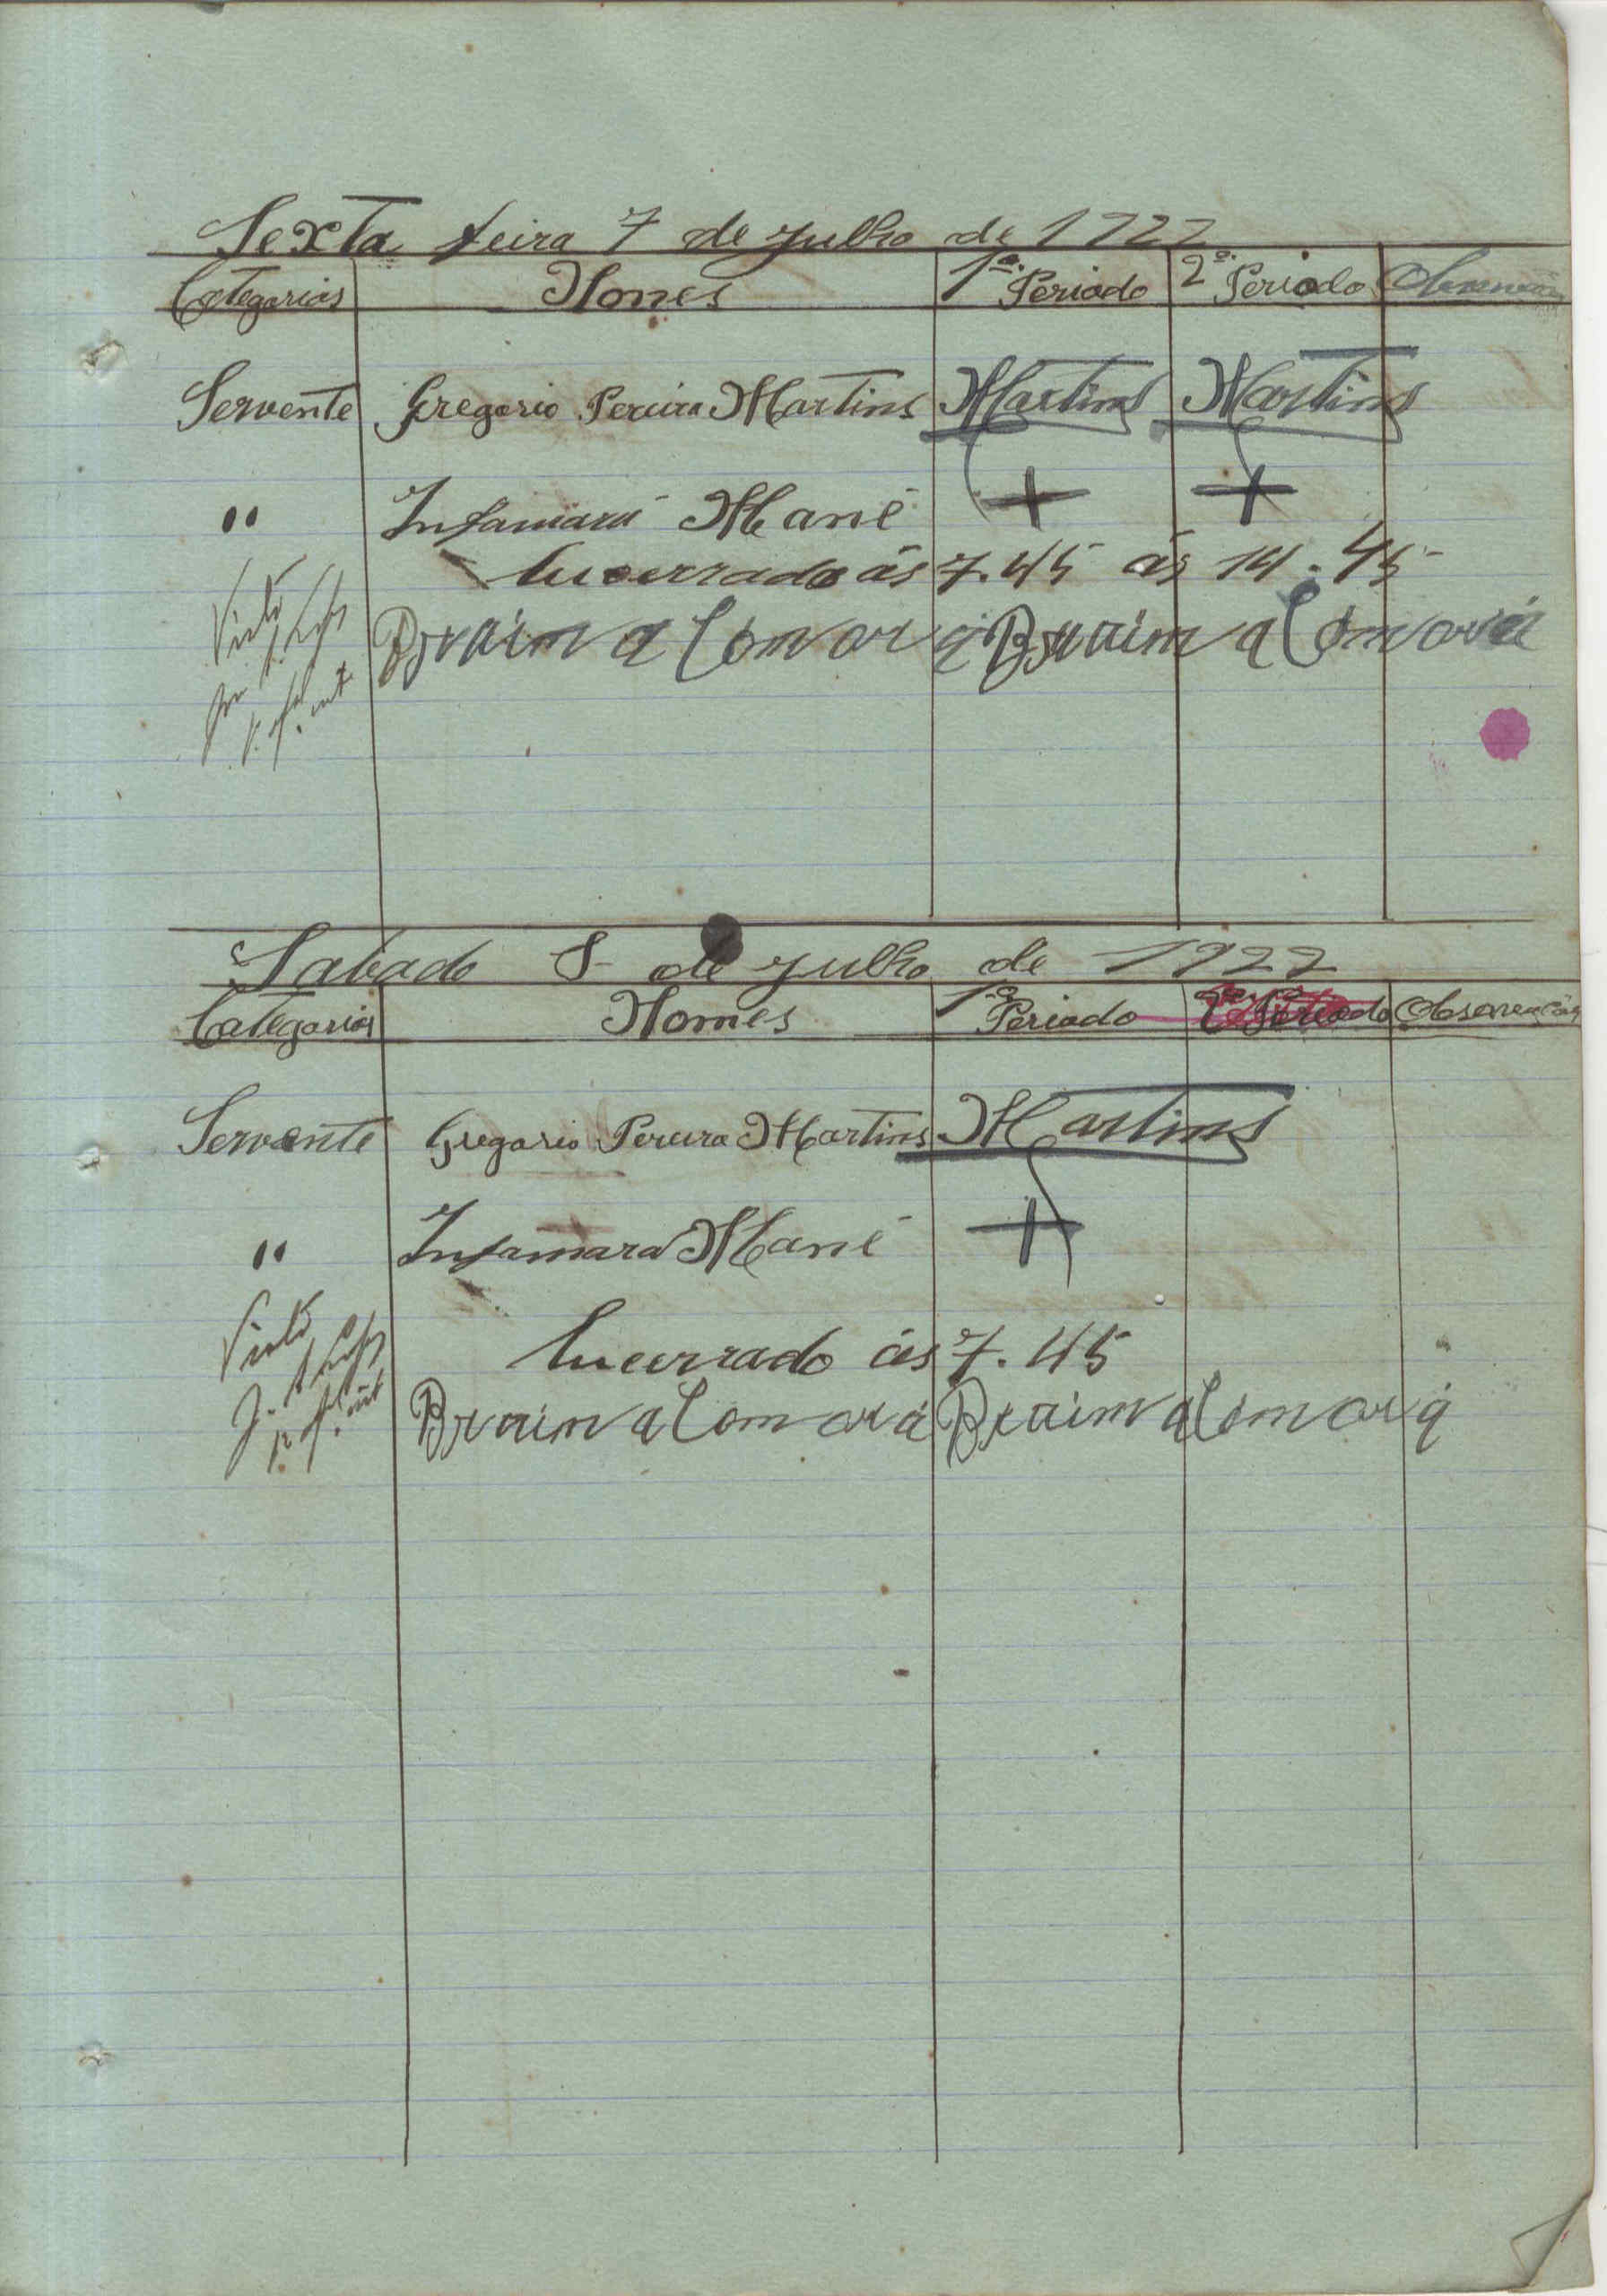 Sexta feira 7 de Julho de 1922
Categorias Nomes 1º. Periodo 2º. Periodo
Servente Gregorio Pereira Martins Martins Martins
" Infamará Mané + +
Encerrado ás 7.45 ás 14.45
Braima Comará Braima Comará
Visto
Sabado 8 de Julho de 1922
Categorias Nomes 1º Periodo 2º Periodo Observações
Servente Gregorio Pereira Martins Martins
" Infamara Mané +
Visto
Encerrado ás 7.45
Braima Comará Braima Comará